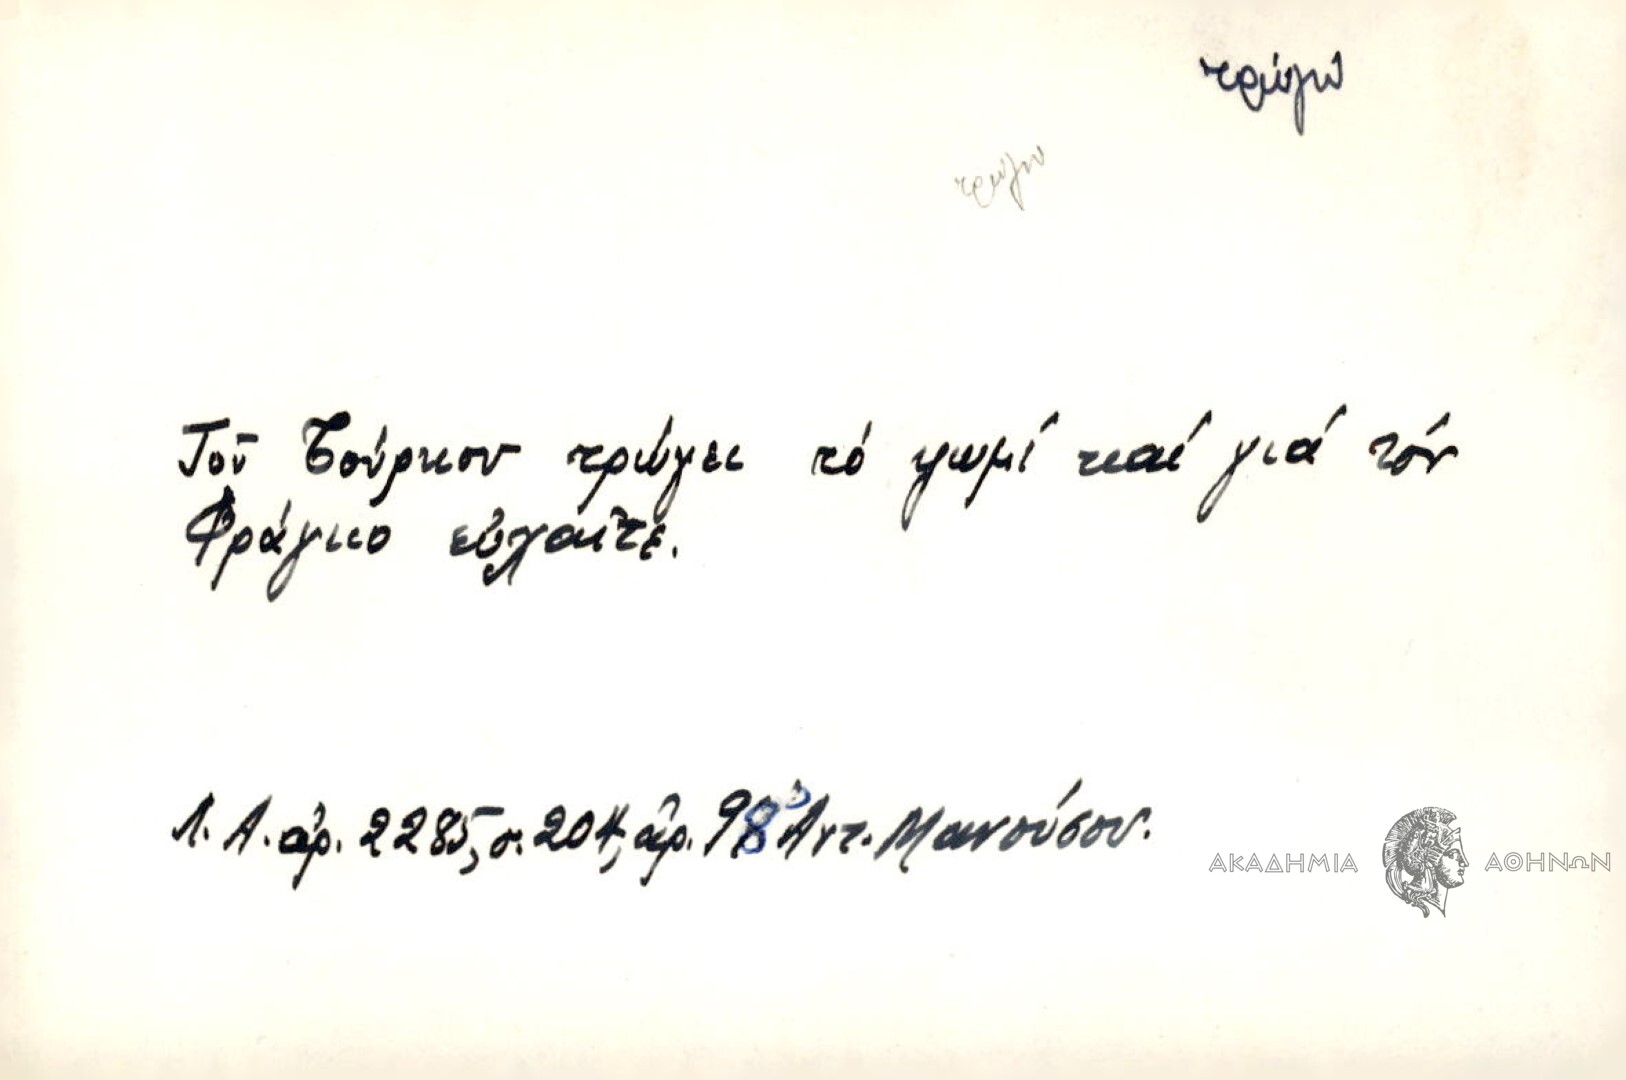 τρώγω
τρώγω
Τοῦ Τούρκου τρώγει τό ψωμί καί γιά τόν
Φράγκο εὐχαῖτε.
Λ. Α. ἀρ. 2285, σ. 204, ἀρ. 98 Ἀντ. Μανούσου.
ΑΚΑΔΗΜΙΑ ΑΘΗΝΩΝ